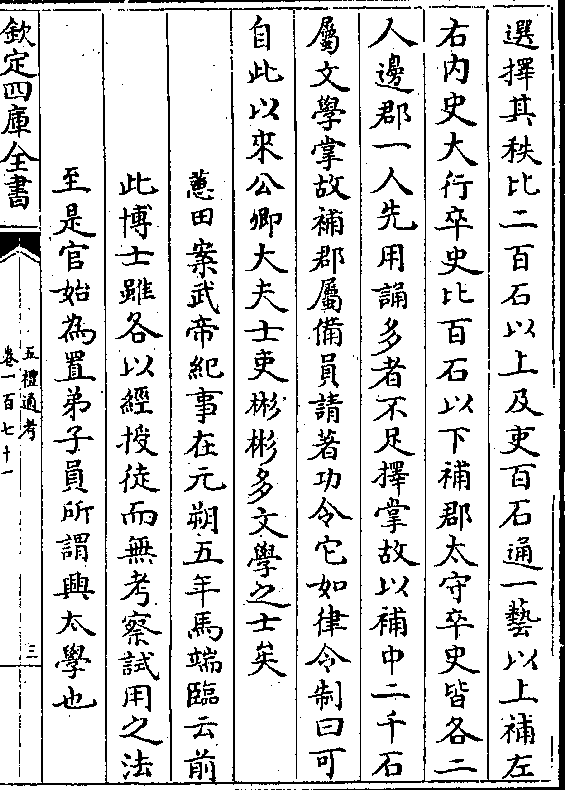 選擇其秩比二百石以上及吏百石通一藝以上補左
右内史大行卒史比百石以下補郡太守卒史皆各二
人邊郡一人先用誦多者不足擇掌故以補中二千石
屬文學掌故補郡屬備員請著功令它如律令制曰可
自此以來公卿大夫士吏彬彬多文學之士矣
蕙田案武帝紀事在元朔五年馬端臨云前
此博士雖各以經授徒而無考察試用之法
至是官始為置弟子員所謂興太學也
欽定四庫全書
五禮通考
卷一百七十一
三